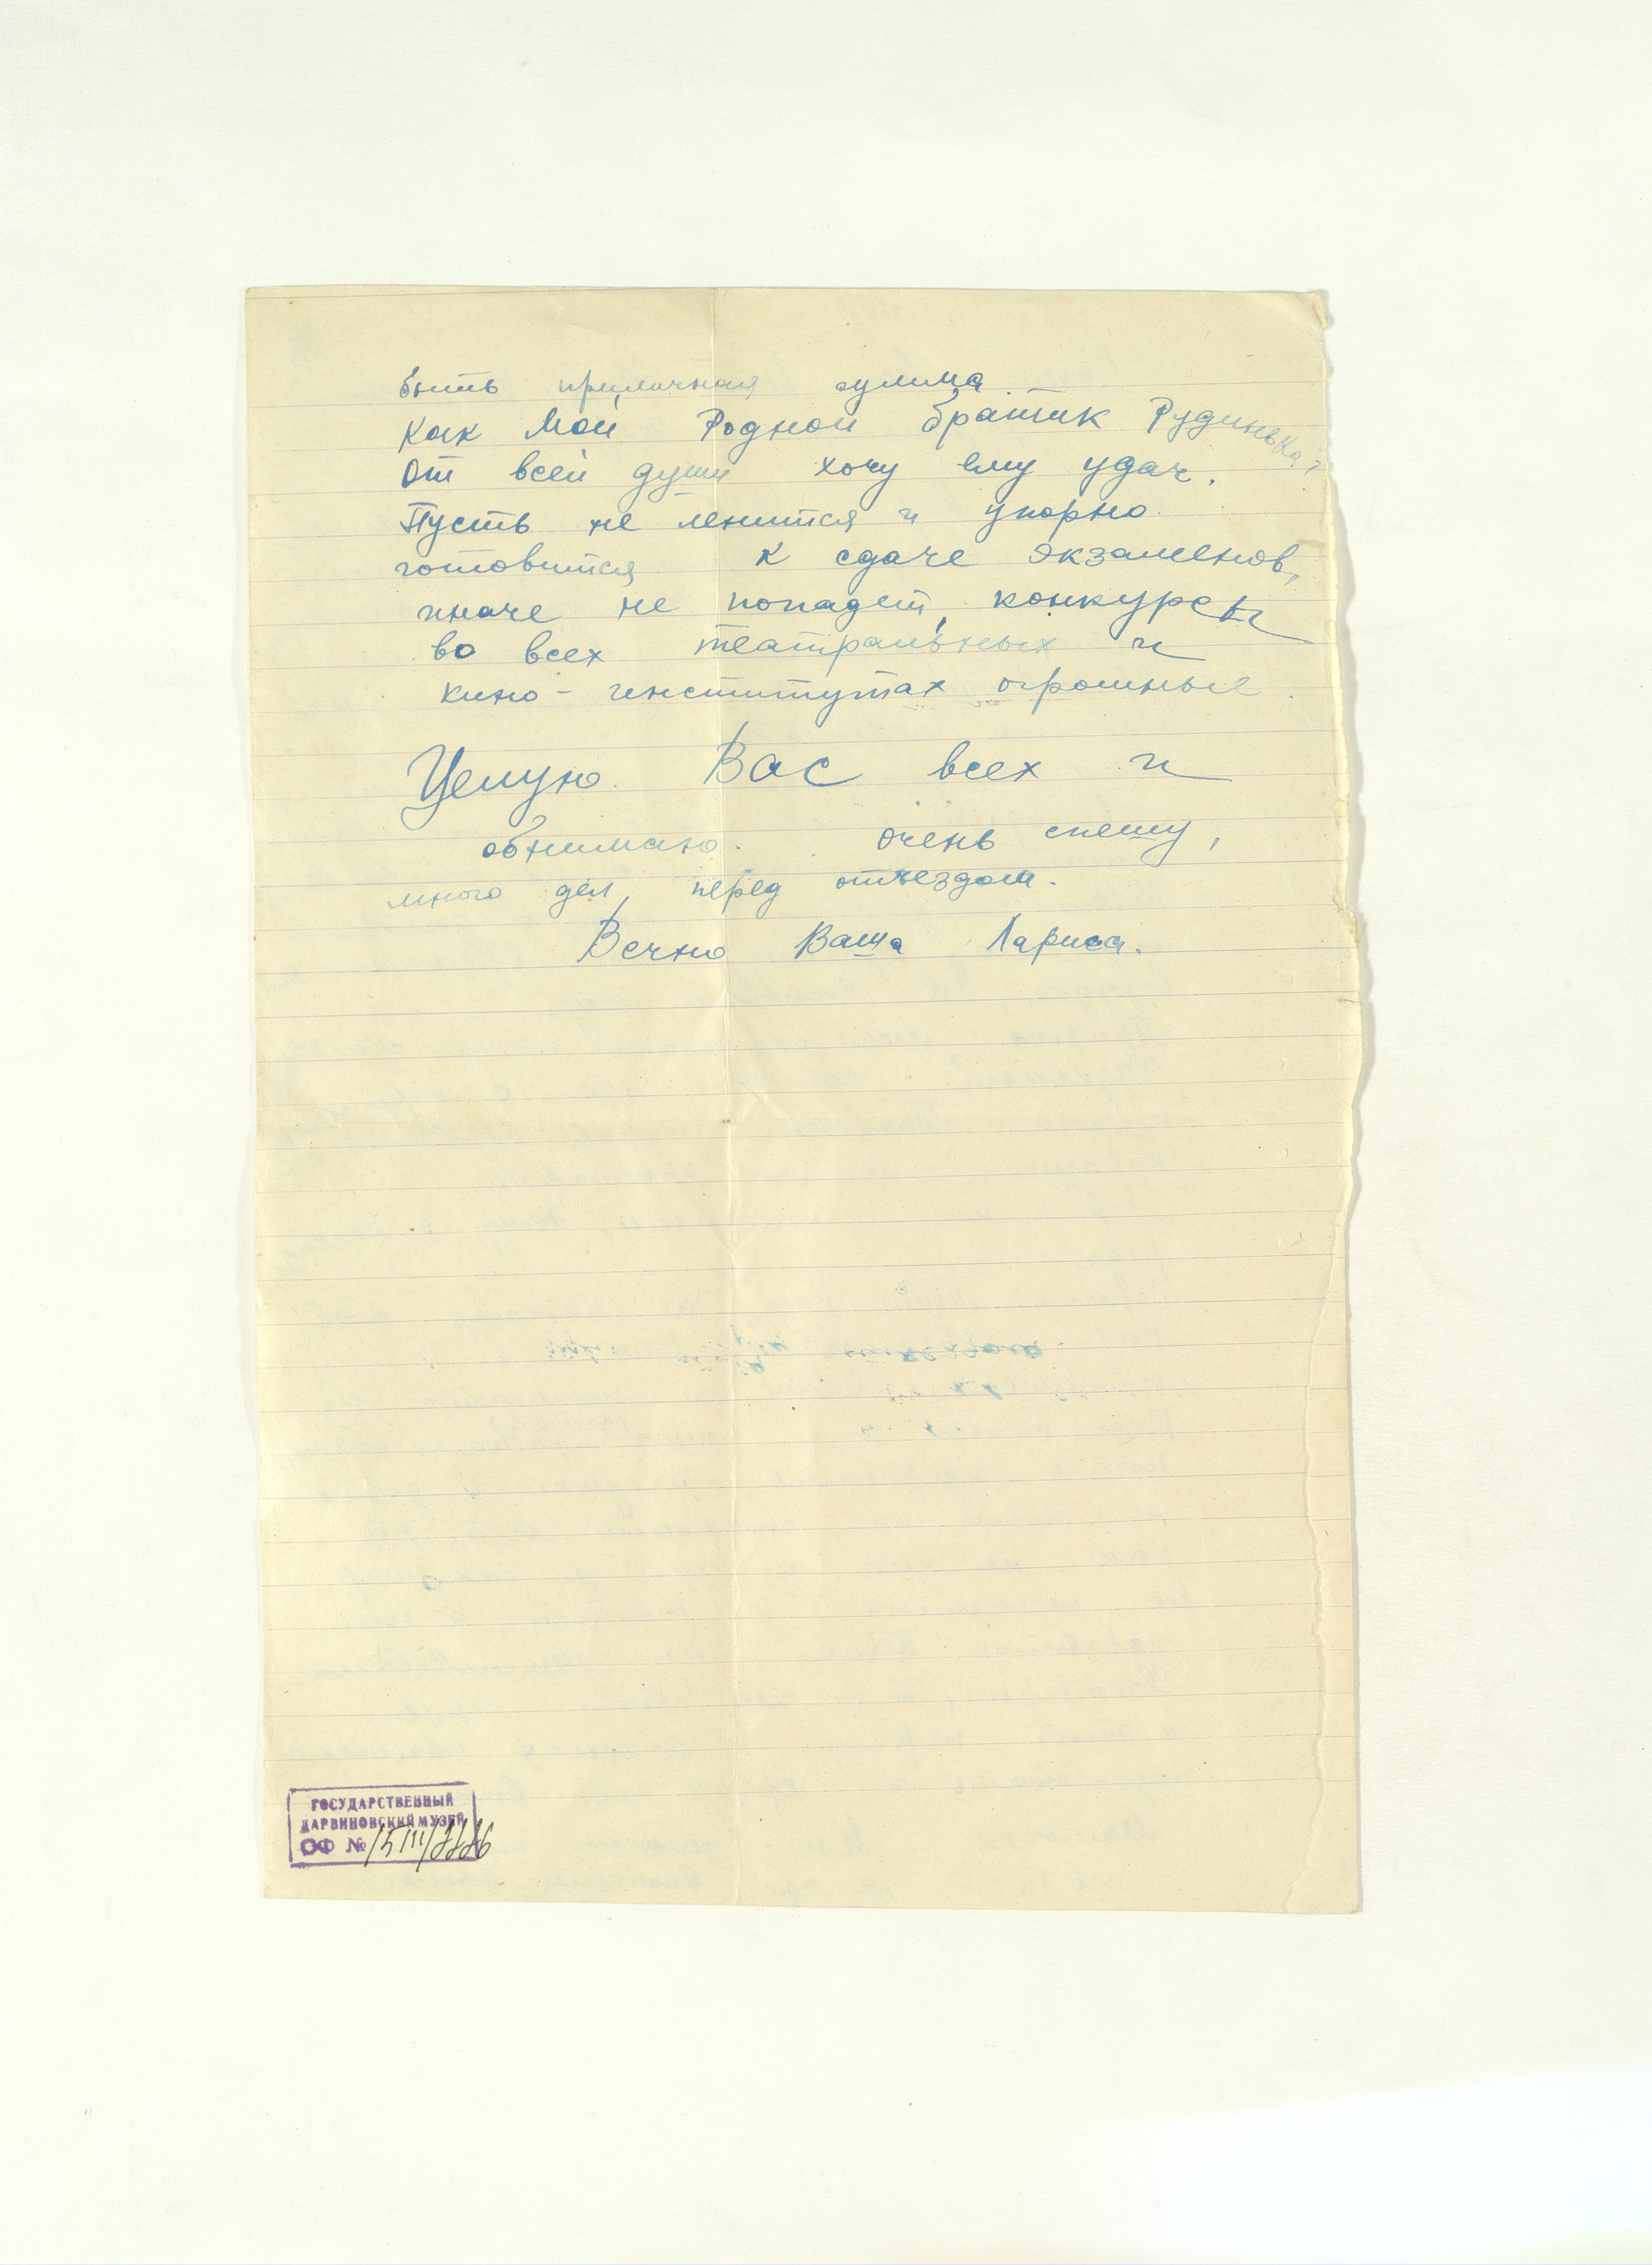 быть приличная сумма
Как Мой Родной братик Рудинька?
От всей души хочу ему удач.
Пусть не ленится и упорно
готовится к сдаче экзаменов,
иначе не попадет, конкурсы
во всех театральных и
кино-институтах огромные.
Целую Вас всех и
обнимаю. очень спешу,
много дел, перед отъездом.
Вечно Ваша Лариса.
ГОСУДАРСТВЕННЫЙ
ДАРВИНОВСКИЙ МУЗЕЙ
ОФ №